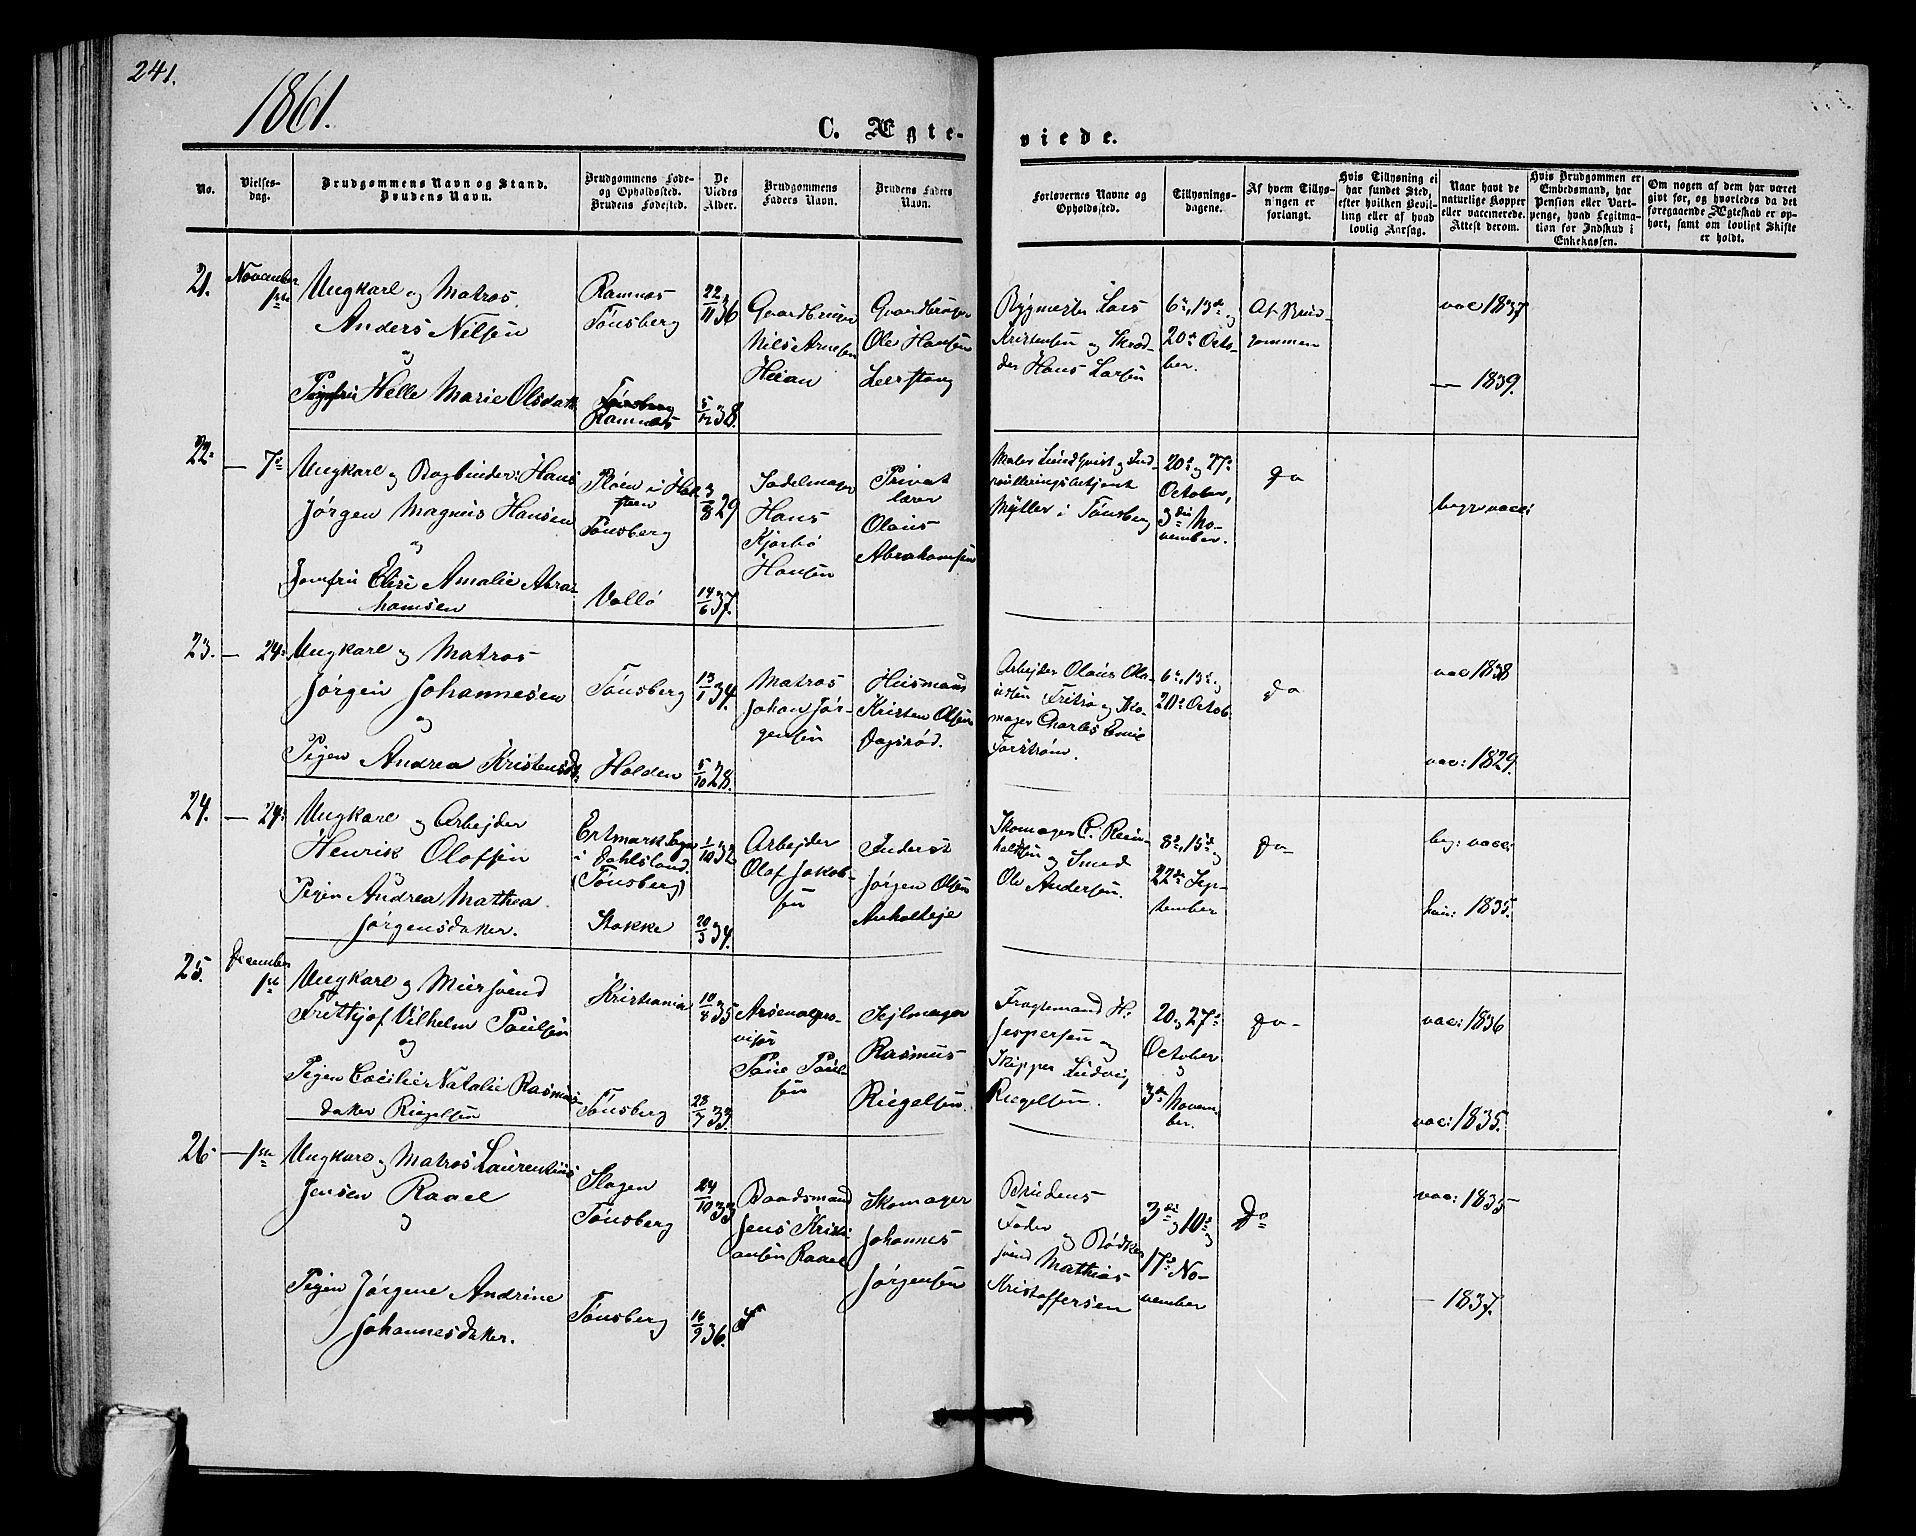 241.
1861.
C. Ægte-
viede.
No.
Vielses-
dag.
Brudgommens Navn og Stand.
Brudens Navn.
Brudgommens Føde-
og Opholdssted.
Brudens Fødested.
De
Viedes
Alder.
Brudgommens
Faders Navn.
Brudens Faders
Navn.
Forlovernes Navne og
Opholdssted.
Tillysnings-
dagene.
Af hvem Tillys-
ningen er
forlangt.
Hvis Tillysning ei
har fundet Sted,
efter hvilken Bevil-
ling eller af hvad
lovlig Aarsag.
Naar havt de
naturlige Kopper
eller vaccinerede.
Attest derom.
Hvis Brudgommen er
Embedsmand, har
Pension eller Vart-
penge, hvad Legitima-
tion for Indskud i
Enkekassen.
Om nogen af dem har været
gift før, og hvorledes da det
foregaaende Ægteskab er op-
hørt, samt om lovligt Skifte
er holdt.
21.
November
1ste
Ungkarl og Matros
Anders Nilsen
og
Helle Marie Olsdatr
Ramnæs
Tønsberg
Tønsberg
Ramnæs
22/11 36
5/12 38.
Gaardbruger
Nils Arnesen
Heian
Gaardbruger
Ole Hansen
Leerstang
Bygmester Lars
Kristensen og Skræd-
der Hans Larsen
6te, 13de og
20de Octo-
ber.
Af Brud-
gommen
vac 1837
— 1839.
22.
— 7de
Ungkarl og Bogbinder: Hans
Jørgen Magnus Hansen
og
Jomfru Elise Amalie Abra-
hamsen
Pløen i Hol-
steen
Tønsberg
Vallø
3/8 29
14/6 37.
Sadelmager
Hans
Kjærbö
Hansen
Privat
lærer
Olaus
Abrahamsen
Maler Lundqvist og Ind-
rulleringsbetjent
Myller i Tønsberg
20de og 27de
October,
3die No-
vember.
do
begge vacc:
23.
— 24de
Ungkarl og Matros
Jørgen Johannesen
og
Pigen Andrea Kristensd.
Tønsberg
Holden
13/1 34.
5/10 28.
Matros
Johan Jør-
gensen
Husmand
Kristen Olsen
Dagsrød.
Arbejder Olaus Ola-
isen Fritsø og Sko-
mager Charles Emil
Forstrøm.
6te, 13de og
20de Octob.
do
vac 1838
vac: 1829.
24.
— 24de
Ungkarl og Arbejder
Henrik Olofsen
og
Pigen Andrea Mathea
Jørgensdatter.
i Dahlsland.
(Tønsberg)
Stokke
1/10 32
20/3 34.
Arbejder
Olof Jakob-
sen
Inderst
Jørgen Olsen
Anholteje
Skomager C. Rein-
holdtsen og Smed
Ole Andersen.
8de, 15de og
22de Sep-
tember
do
beg: vacc:
hun: 1835.
25.
December
1ste
Ungkarl og Muursvend
Frithjof Vilhelm Paulsen
og
Pigen Cecilie Natalie Rasmus-
datter Riegelsen
Kristiania
Tønsberg
10/8 35
28/7 33.
Arsenalpro-
visør
Paul-
sen
Sejlmager
Rasmus
Riegelsen.
Fragtemand H.
Jespersen og
Skipper Ludvig
Riegelsen.
20 og 27de
October
og
3die Novem-
ber.
do
vac: 1836
vac: 1835.
26
— 1ste
Ungkarl og Matros Laurentius
Jensen Raael
og
Pigen Jørgene Andrine
Johannesdatter.
Slagen
Tønsberg
Tønsberg
24/10 33
16/9 36.
Baadsmand
Jens Kristi-
ansen Raael
Skomager
Johannes
Jørgensen
Brudens
Fader
og Bødker
svend Mathias
Kristoffersen
3die og 10de og
17de No-
vember
do
vac: 1835
— 1837.